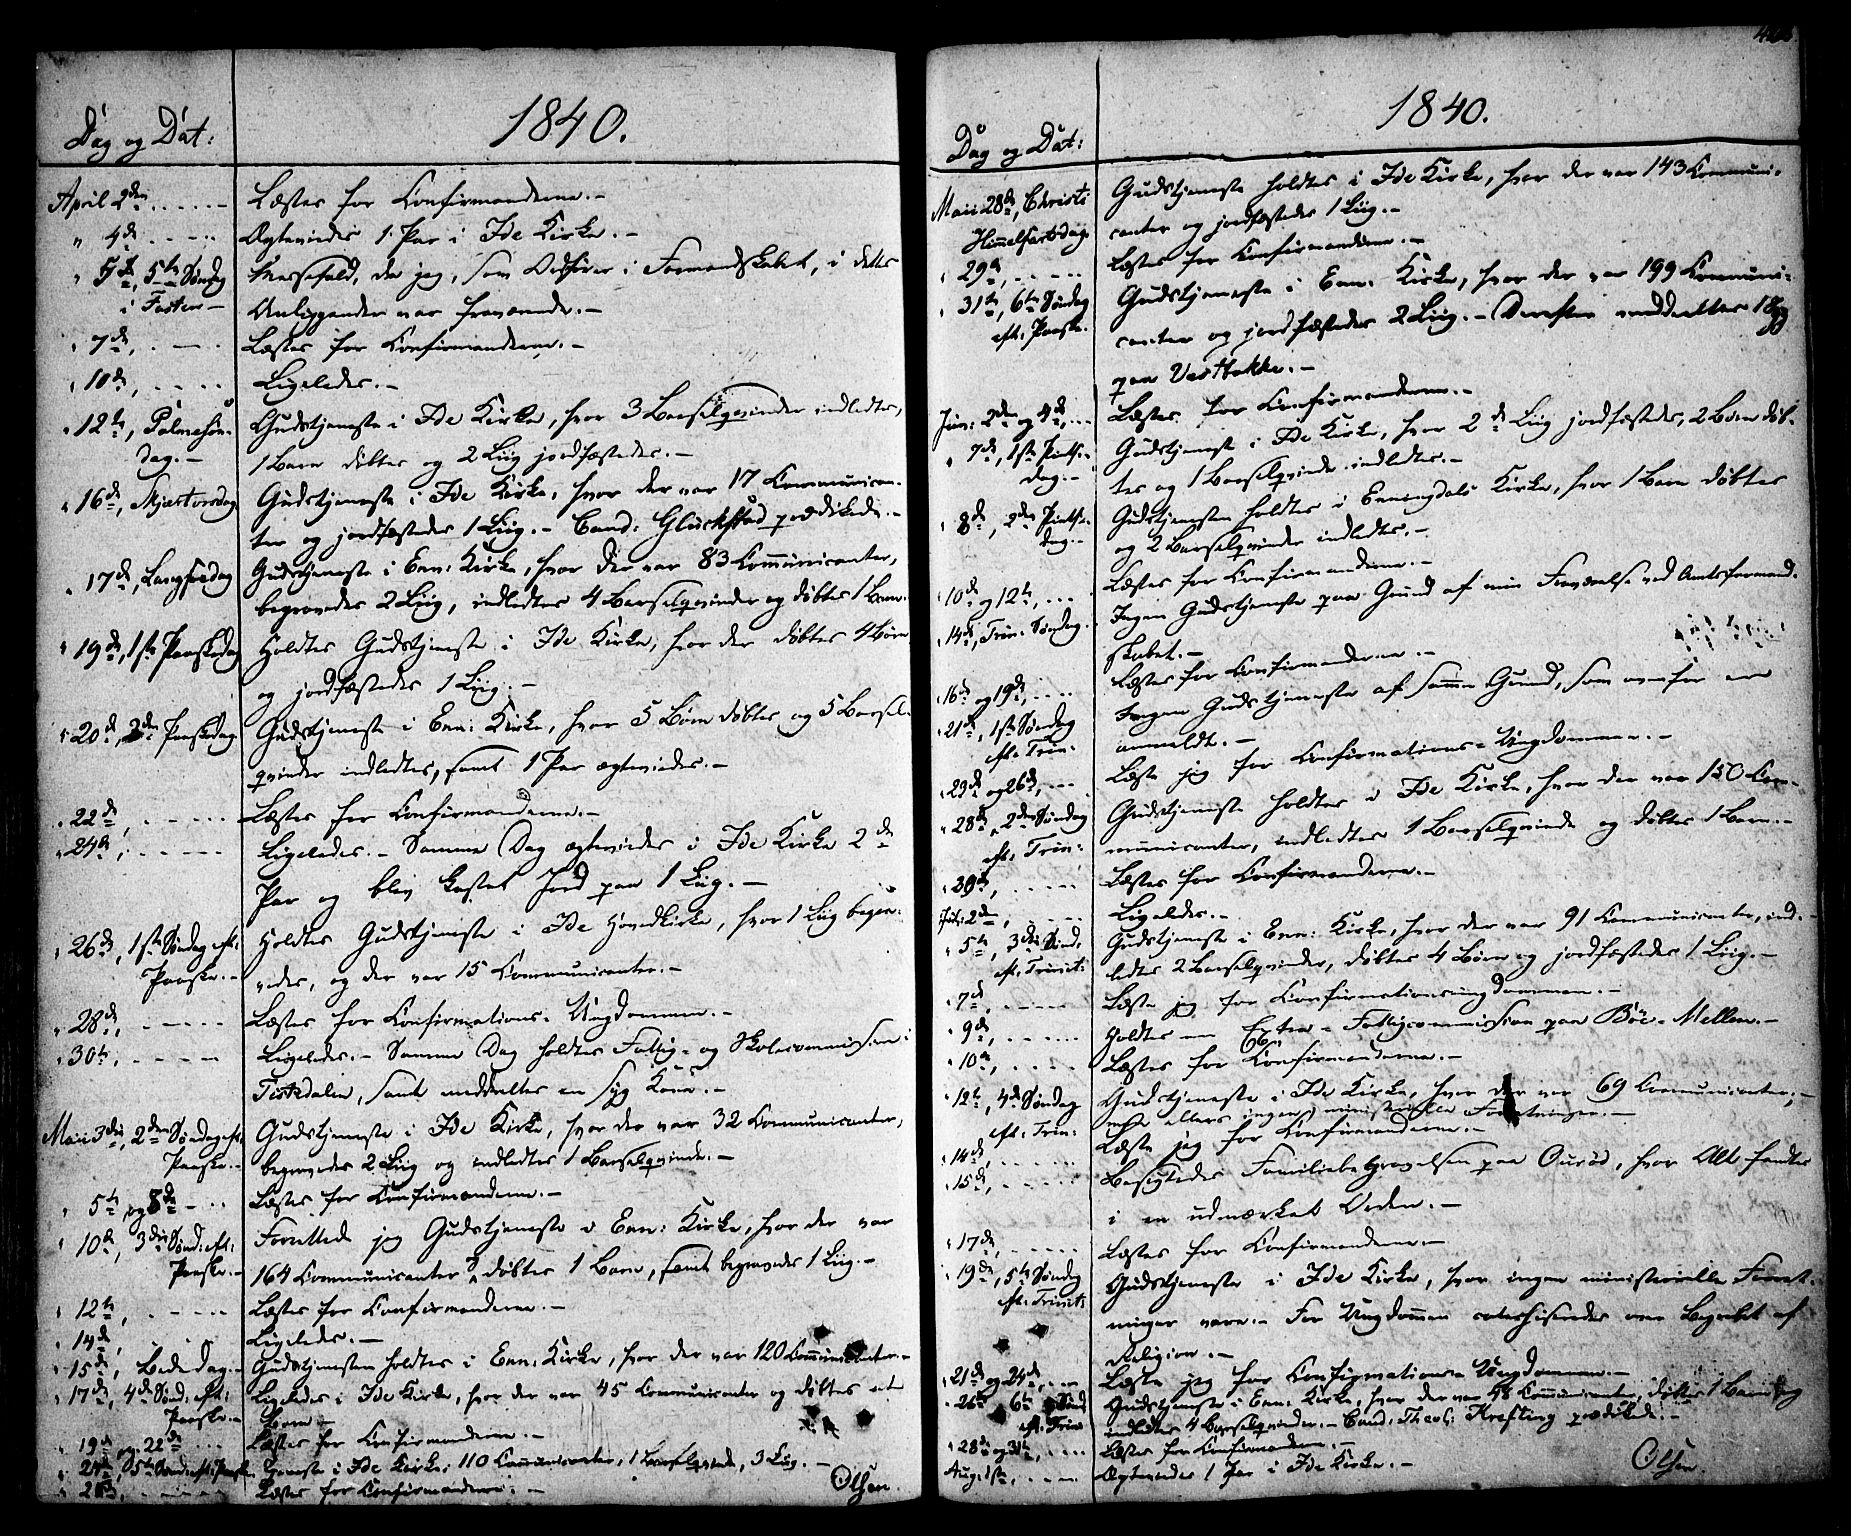 1840.
Dag og Dat:
April 2den Læstes for Confirmanderne.-
" 4de Ægteviedes 1 Par i Ide Kirke.-
" 5te, 5te Søndag Messefald, da jeg, som Ordfører i Formandskabet, i dettes
i Fasten Anliggender var fraværende.-
" 7de, Læstes for Confirmanderne.-
" 10de, Ligeledes.-
" 12te, Palmesøn- Gudstjeneste i Ide Kirke, hvor 3 Barselqvinder indledtes,
dag.- 1 Barn døbtes og 2 Liig jordfæstedes.-
" 16de, Skjærtorsdag Gudstjeneste i Ide Kirke, hvor der var 17 Communican-
ter og jordfæstedes 1 Liig.- Cand: Glückstad prædikede.-
" 17de, Langfredag Gudstjeneste i Enn: Kirke, hvor der var 83 Communicanter,
begravedes 2 Liig, indledtes 4 Barselqvinder og døbtes 1 Barn.
" 19de, 1ste Paaskedag Holdtes Gudstjeneste i Ide Kirke, hvor der døbtes 4 Børn
og jordfæstedes 1 Liig.-
" 20de, 2de Paaskedag Gudstjeneste i Enn: Kirke, hvor 5 Børn døbtes og 5 Barsel-
qvinder indledtes, samt 1 Par ægteviedes.-
" 22de, Læstes for Confirmanderne.-
" 24de, Ligeledes.- Samme Dag ægteviedes i Ide Kirke 2de
Par og blev kastet Jord paa 1 Liig.-
" 26de, 1ste Søndag eft: Holdtes Gudstjeneste i Ide Hovedkirke, hvor 1 Liig begra-
Paaske.- vedes, og der var 15 Communicanter.-
" 28de, Læstes for Confirmations-Ungdommen.-
" 30te, Ligeledes.- Samme Dag holdtes Fattig- og Skolecommission i
Tistedalen, samt meddeeltes en syg Kone.-
Maii 3die, 2den Søndag eft: Gudstjeneste i Ide Kirke, hvor der var 32 Communicanter,
Paaske.- begravedes 2 Liig og indledtes 1 Barselqvinde.-
" 5te og 8de Læstes for Confirmanderne.-
" 10de, 3die Sønd: eft: Forrettede jeg Gudstjeneste i Enn: Kirke, hvor der var
Paaske.- 164 Communicanter & døbtes 1 Barn, samt begravedes 1 Liig.-
" 12te, Læstes for Confirmanderne.-
" 14de, Ligeledes.-
" 15de, Bededag.- Gudstjenesten holdtes i Enn: Kirke, hvor der var 120 Communicanter.-
" 17de, 4de Sønd: eft: Ligeledes i Ide Kirke, hvor der var 45 Communicanter og døbtes et
Paaske.- Barn.-
" 19de og 22de Læstes for Confirmanderne.-
" 24de, 5te Sønd: eft: Paaske. Tjeneste i Ide Kirke, 110 Communicanter, 1 Barselqvinde, 3 Liig.-
Læstes for Confirmanderne.-
Olsen.
1840.
Dag og Dat:
Maii 28de, Christi Gudstjeneste holdtes i Ide Kirke, hvor der var 143 Communi-
Himmelfartsdag. canter og jordfæstedes 1 Liig.-
" 29de, Læstes for Confirmanderne.-
" 31te, 6te Søndag Gudstjeneste i Enn: Kirke, hvor der var 199 Communi-
eft: Paaske. canter og jordfæstedes 2 Liig.- Derefter meddeeltes 1 Syg
paa Vestbakke.-
Juni: 2den og 4de, Læstes for Confirmanderne.-
" 7de, 1ste Pintse- Gudstjeneste i Ide Kirke, hvor 2de Liig jordfæstedes, 2 Børn døb-
dag.- tes og 1 Barselqvinde indledtes.-
" 8de, 2den Pintse- Gudstjenesten holdtes i Enningdals Kirke, hvor 1 Barn døbtes
dag.- og 2 Barselqvinder indledtes.-
" 10de og 12te, Læstes for Confirmanderne.-
" 14de, Trin: Søndag. Ingen Gudstjeneste paa Grund af min Fraværelse ved Amtsformand-
skabet.-
16de og 19de, Læstes for Confirmanderne.-
" 21de, 1ste Søndag Ingen Gudstjeneste af samme Grund, som ovenfor er
eft: Trin: anmeldt.-
" 23de og 26de, Læste jeg for Confirmations-Ungdommen.-
" 28de, 2den Søndag Gudstjeneste holdtes i Ide Kirke, hvor der var 150 Com-
eft: Trin: municanter, indledtes 1 Barselqvinde og døbtes 1 Barn.-
" 30te, Læstes for Confirmanderne.-
Juli: 2den, Ligeledes.-
" 5te, 3die Sønd: Gudstjeneste i Enn: Kirke, hvor der var 91 Communicanter, ind-
eft: Trinit: ledtes 2 Barselqvinder, døbtes 4 Børn og jordfæstedes 1 Liig.-
" 7de, Læste jeg for Confirmationsungdommen.-
" 9de, Holdtes Extra-Fattigcommission paa Böe-Mellem.-
" 10de, Læstes for Confirmanderne.-
" 12te, 4de Søndag Gudstjeneste i Ide Kirke, hvor der var 69 Communicanter,
eft: Trin: men ellers ingen ministerielle Forretninger.-
" 14de, Læste jeg for Confirmanderne.-
" 15de, Besigtedes Familiebegravelsen paa Ourød, hvor Alt fandtes
i en udmærket Orden.-
" 17de, Læstes for Confirmanderne.-
" 19de, 5te Søndag Gudstjeneste i Ide Kirke, hvor ingen ministerielle Forret-
eft: Trinit: ninger vare.- For Ungdommen catechiseredes over Begrebet af
Religion.-
" 21de og 24de, Læste jeg for Confirmations-Ungdommen.-
" 26de 6te Sønd Gudstjeneste i Enn: Kirke, hvor der var 58 Communicanter, døbtes 1 Barn og
eft: Trin indledtes 4 Barselqvinder.- Cand: Theol: Krefting prædikede.-
" 28de og 31te, Læstes for Confirmanderne.-
Aug: 1ste, Ægteviedes 1 Par i Ide Kirke.-
Olsen.